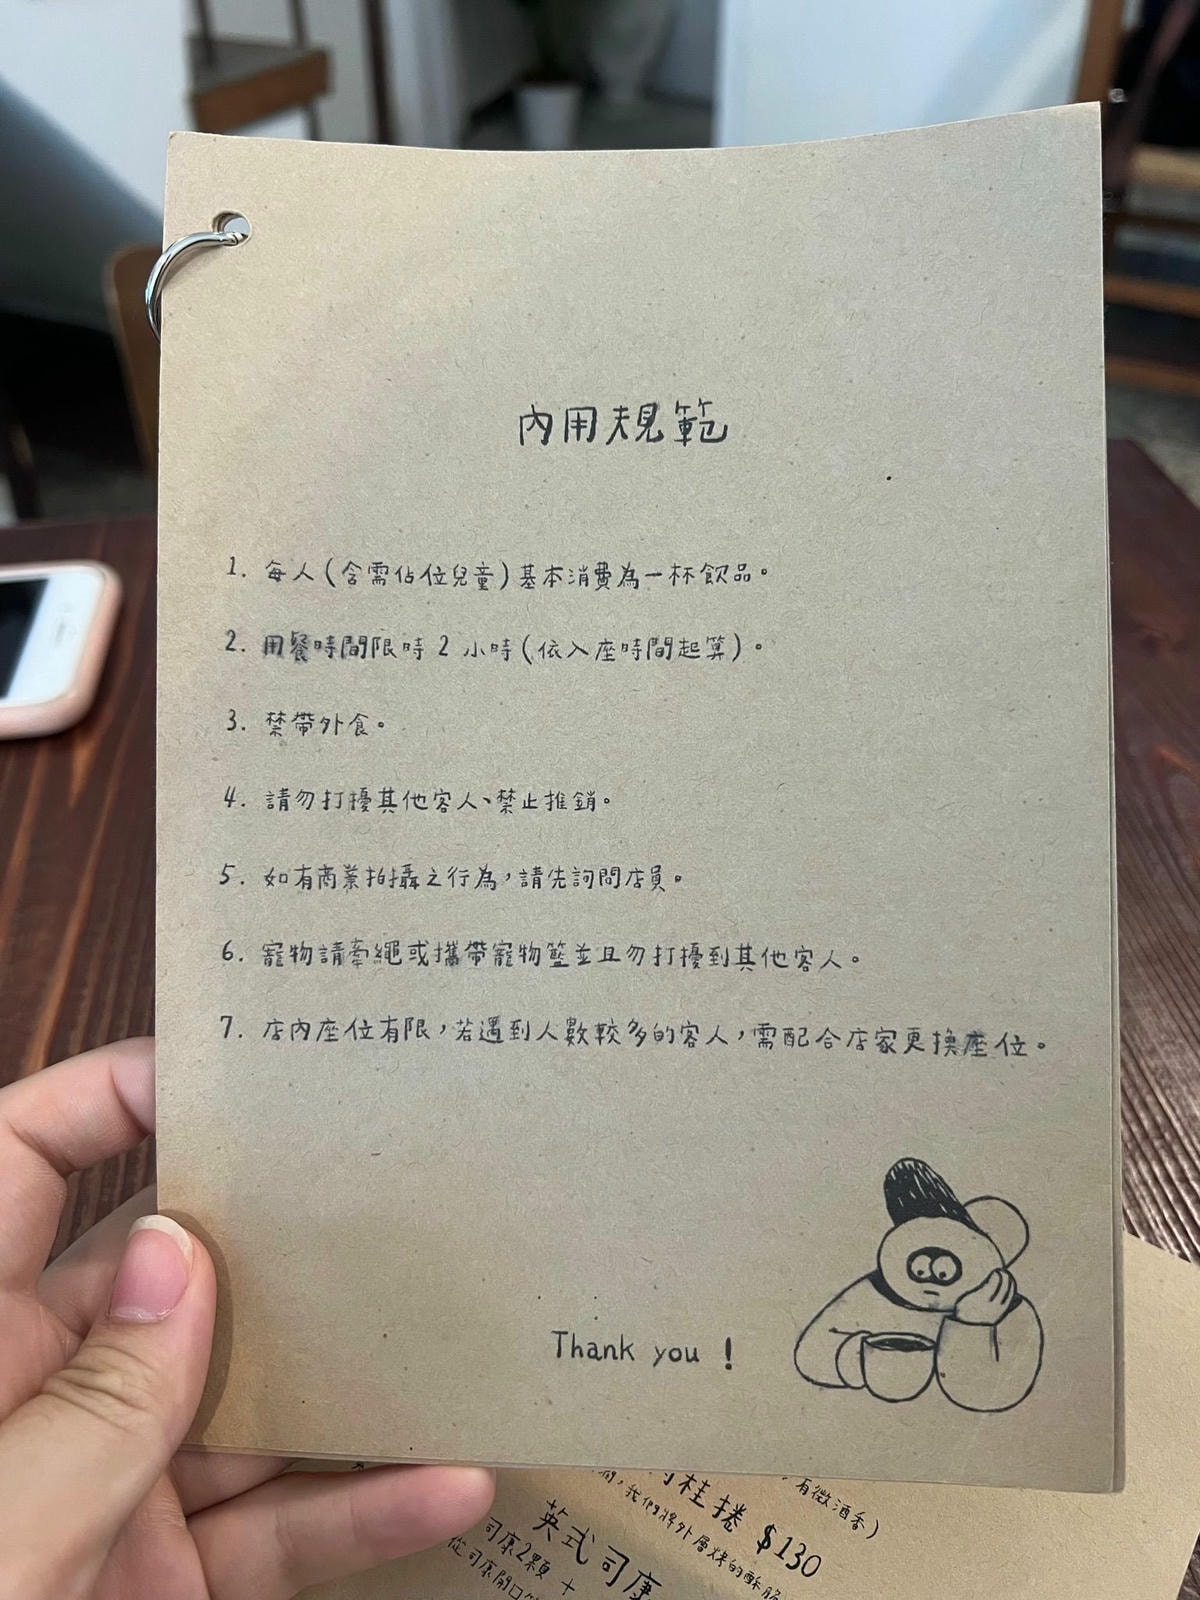 內用規範
1. 每人(含需佔位兒童)基本消費為一杯飲品。
2. 用餐時間限時 2 小時(依入座時間起算)。
3. 禁帶外食。
4. 請勿打擾其他客人、禁止推銷。
5. 如有商業拍攝之行為，請先詢問店員。
6. 寵物請牽繩或攜帶寵物籃並且勿打擾到其他客人。
7. 店內座位有限，若遇到人數較多的客人，需配合店家更換座位。
Thank you !
有微酒香)
桂捲 $130
我們將外層烤的酥脆
英式司康
司康2顆 +
從司康開口